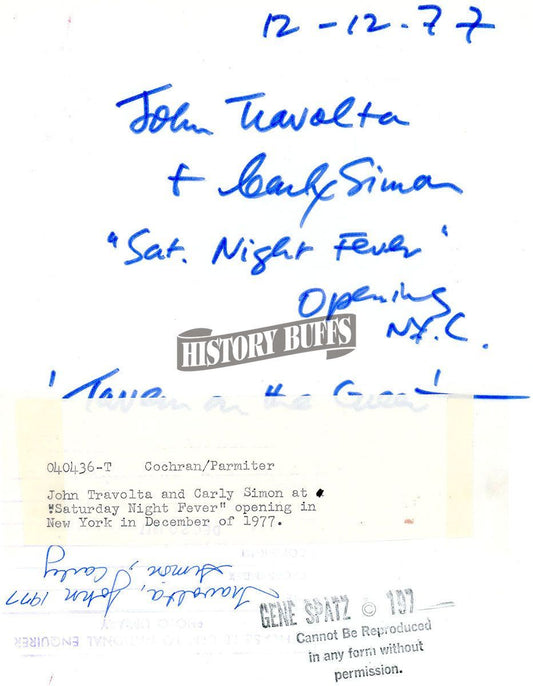 12-12-77
John Travolta
+ Carly Simon
"Sat. Night Fever"
Opening
N.Y.C.
HISTORY BUFFS
'Tavern on the Green'
040436-T Cochran/Parmiter
John Travolta and Carly Simon at
"Saturday Night Fever" opening in
New York in December of 1977.
Travolta, John 1977
Simon, Carly
GENE SPATZ © 197
Cannot Be Reproduced
in any form without
permission.
NATIONAL ENQUIRER